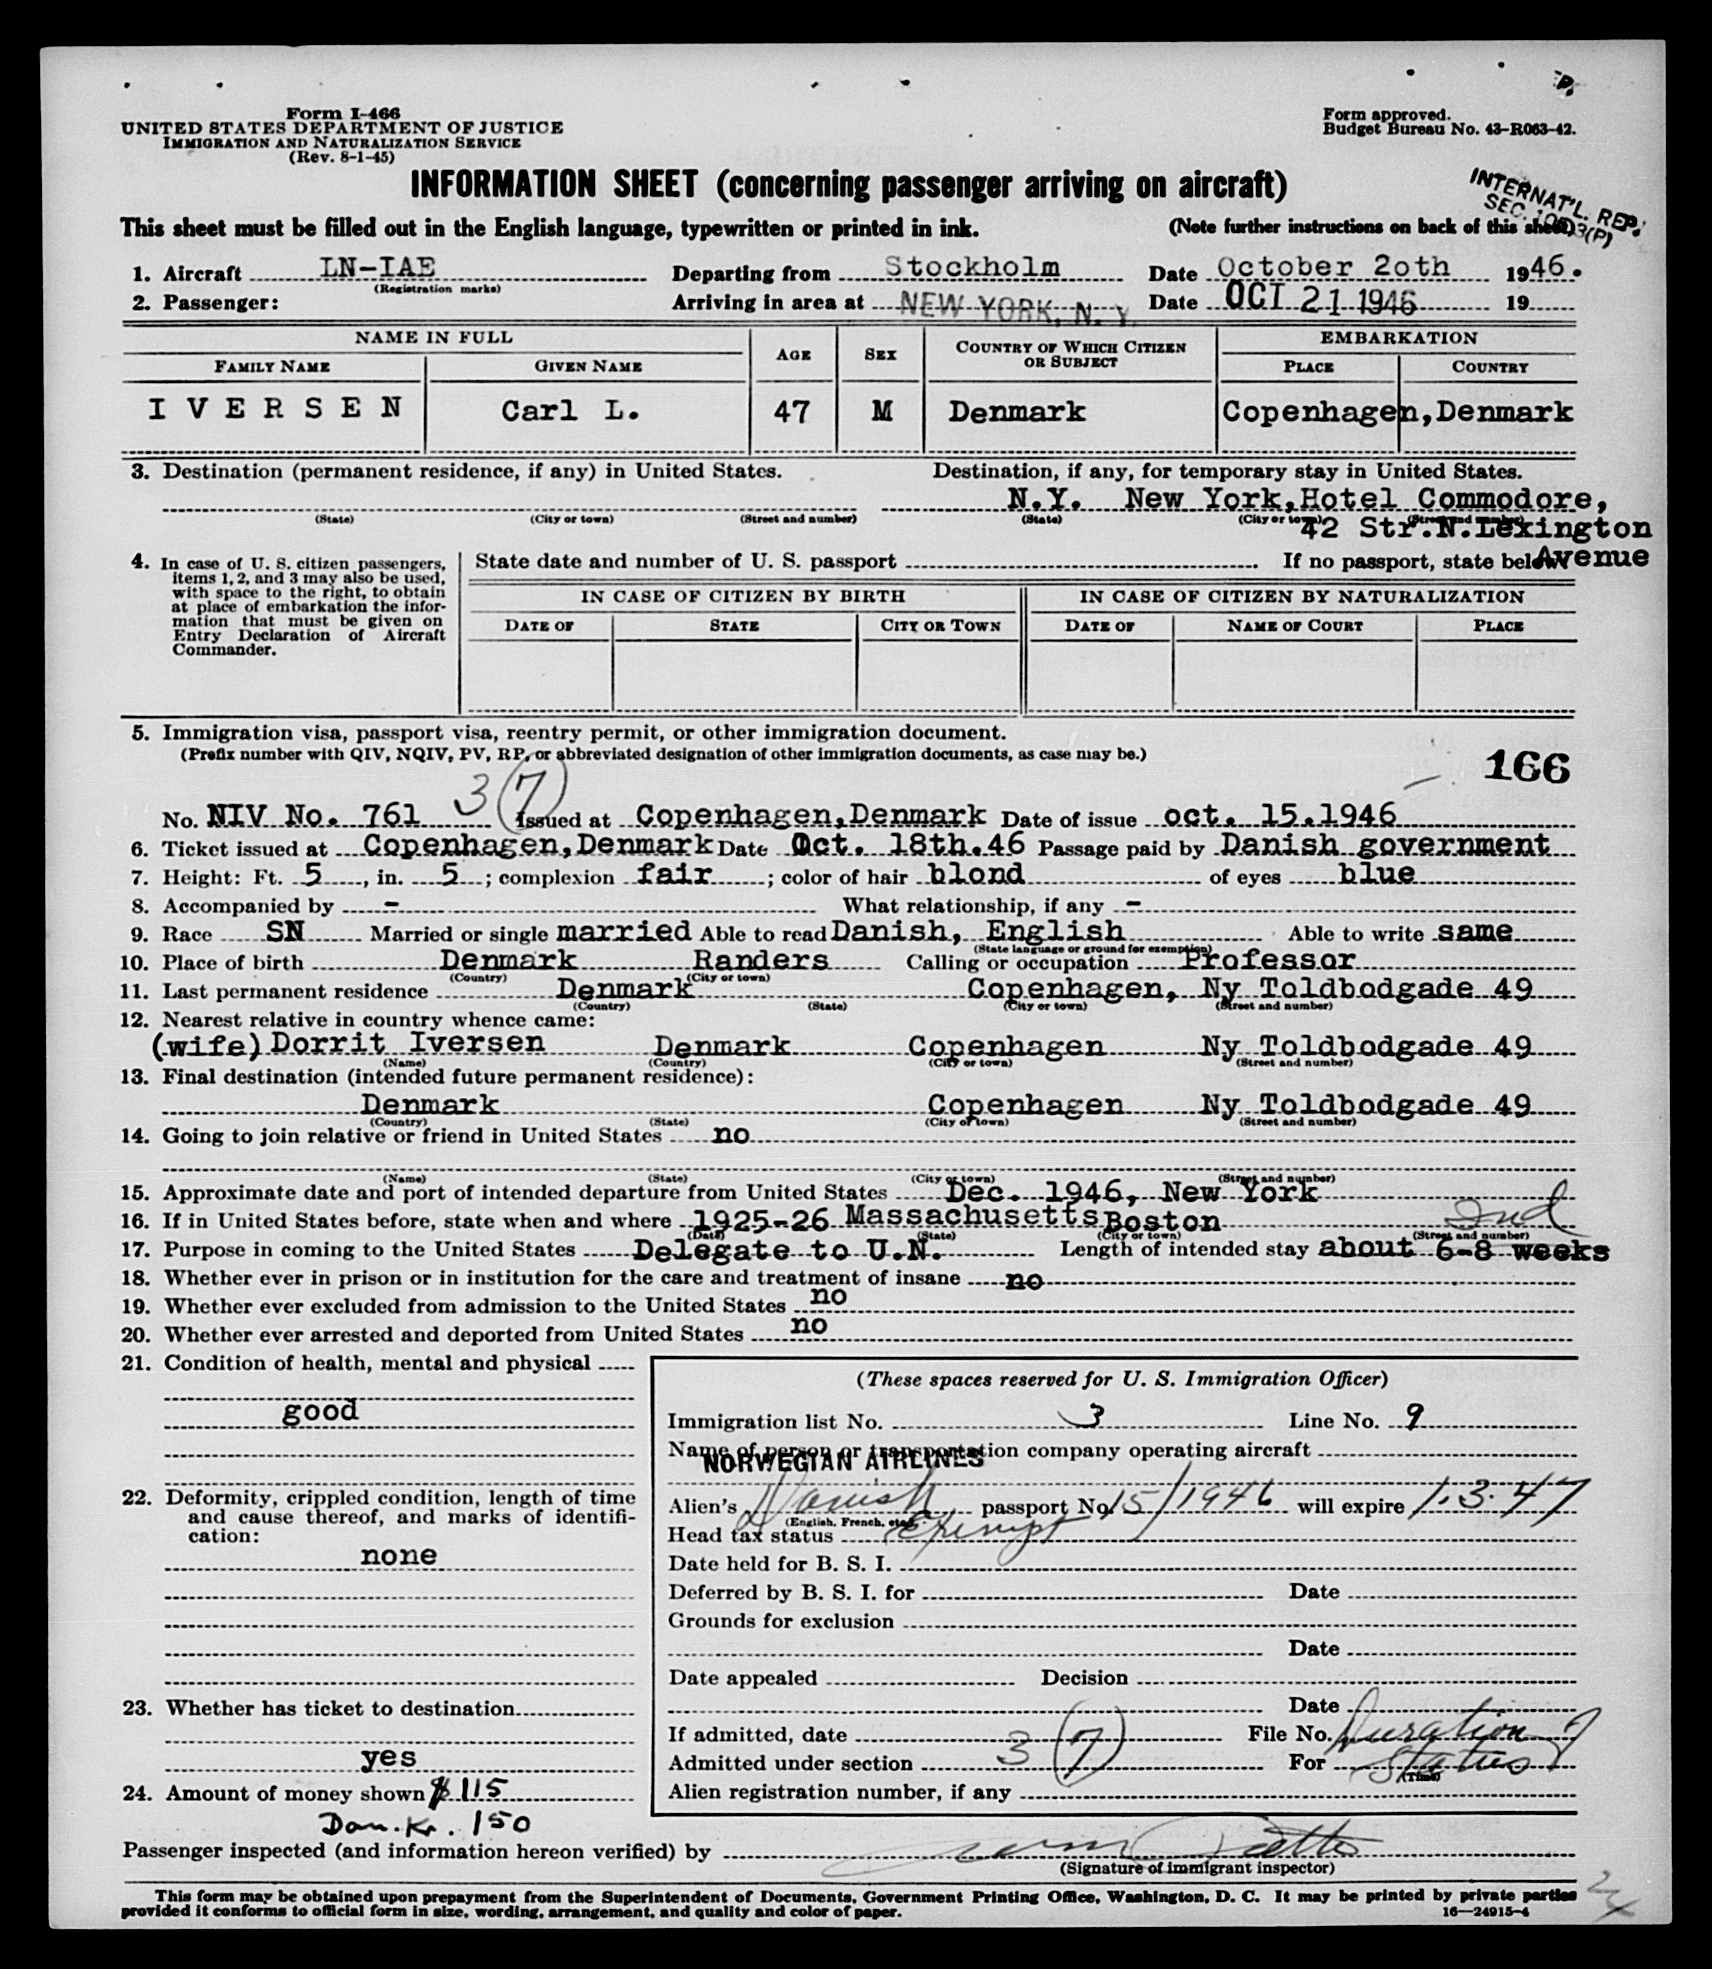 P.
Form I-466
UNITED STATES DEPARTMENT OF JUSTICE
IMMIGRATION AND NATURALIZATION SERVICE
(Rev. 8-1-45)
Form approved.
Budget Bureau No. 43-R063-42.
INFORMATION SHEET (concerning passenger arriving on aircraft)
INTERNAT'L. REP.
This sheet must be filled out in the English language, typewritten or printed in ink. (Note further instructions on back of this sheet)
1. Aircraft LN-IAE Departing from Stockholm Date October 2oth 1946.
(Registration marks)
2. Passenger: Arriving in area at NEW YORK, N. Y. Date OCT 21 1946 19
NAME IN FULL AGE SEX COUNTRY OF WHICH CITIZEN OR SUBJECT EMBARKATION
FAMILY NAME GIVEN NAME PLACE COUNTRY
I V E R S E N Carl L. 47 M Denmark Copenhagen, Denmark
3. Destination (permanent residence, if any) in United States. Destination, if any, for temporary stay in United States.
N.Y. New York, Hotel Commodore,
(State) (City or town) (Street and number) (State) (City or town) (Street and number)
42 Str.N.Lexington
Avenue
4. In case of U. S. citizen passengers, items 1, 2, and 3 may also be used, with space to the right, to obtain at place of embarkation the information that must be given on Entry Declaration of Aircraft Commander.
State date and number of U. S. passport If no passport, state below
IN CASE OF CITIZEN BY BIRTH IN CASE OF CITIZEN BY NATURALIZATION
DATE OF STATE CITY OR TOWN DATE OF NAME OF COURT PLACE
5. Immigration visa, passport visa, reentry permit, or other immigration document.
(Prefix number with QIV, NQIV, PV, RP, or abbreviated designation of other immigration documents, as case may be.)
166
3(7)
No. NIV No. 761 Issued at Copenhagen, Denmark Date of issue oct. 15.1946
6. Ticket issued at Copenhagen, Denmark Date Oct. 18th.46 Passage paid by Danish government
7. Height: Ft. 5, in. 5; complexion fair; color of hair blond of eyes blue
8. Accompanied by - What relationship, if any -
9. Race SN Married or single married Able to read Danish, English Able to write same
(State language or ground for exemption)
10. Place of birth Denmark Randers Calling or occupation Professor
(Country) (City or town)
11. Last permanent residence Denmark Copenhagen, Ny Toldbodgade 49
(Country) (State) (City or town) (Street and number)
12. Nearest relative in country whence came:
(wife) Dorrit Iversen Denmark Copenhagen Ny Toldbodgade 49
(Name) (Country) (City or town) (Street and number)
13. Final destination (intended future permanent residence):
Denmark Copenhagen Ny Toldbodgade 49
(Country) (State) (City or town) (Street and number)
14. Going to join relative or friend in United States no
(Name) (State) (City or town) (Street and number)
15. Approximate date and port of intended departure from United States Dec. 1946, New York
16. If in United States before, state when and where 1925-26 Massachusetts Boston
(Date) (State) (City or town) (Street and number)
17. Purpose in coming to the United States Delegate to U.N. Length of intended stay about 6-8 weeks
18. Whether ever in prison or in institution for the care and treatment of insane no
19. Whether ever excluded from admission to the United States no
20. Whether ever arrested and deported from United States no
21. Condition of health, mental and physical
good
22. Deformity, crippled condition, length of time and cause thereof, and marks of identification:
none
23. Whether has ticket to destination
yes
24. Amount of money shown $ 115
Dan. Kr. 150
(These spaces reserved for U. S. Immigration Officer)
Immigration list No. 3 Line No. 9
Name of person or transportation company operating aircraft
NORWEGIAN AIRLINES
Alien's Danish passport No. 15/1946 will expire 1.3.47
(English, French, etc.)
Head tax status Exempt
Date held for B. S. I.
Deferred by B. S. I. for Date
Grounds for exclusion
Date
Date appealed Decision
Date
If admitted, date File No. Duration of
Admitted under section 3 (7) For Status
(Time)
Alien registration number, if any
Passenger inspected (and information hereon verified) by
(Signature of immigrant inspector)
This form may be obtained upon prepayment from the Superintendent of Documents, Government Printing Office, Washington, D. C. It may be printed by private parties
provided it conforms to official form in size, wording, arrangement, and quality and color of paper.
16—24915-4